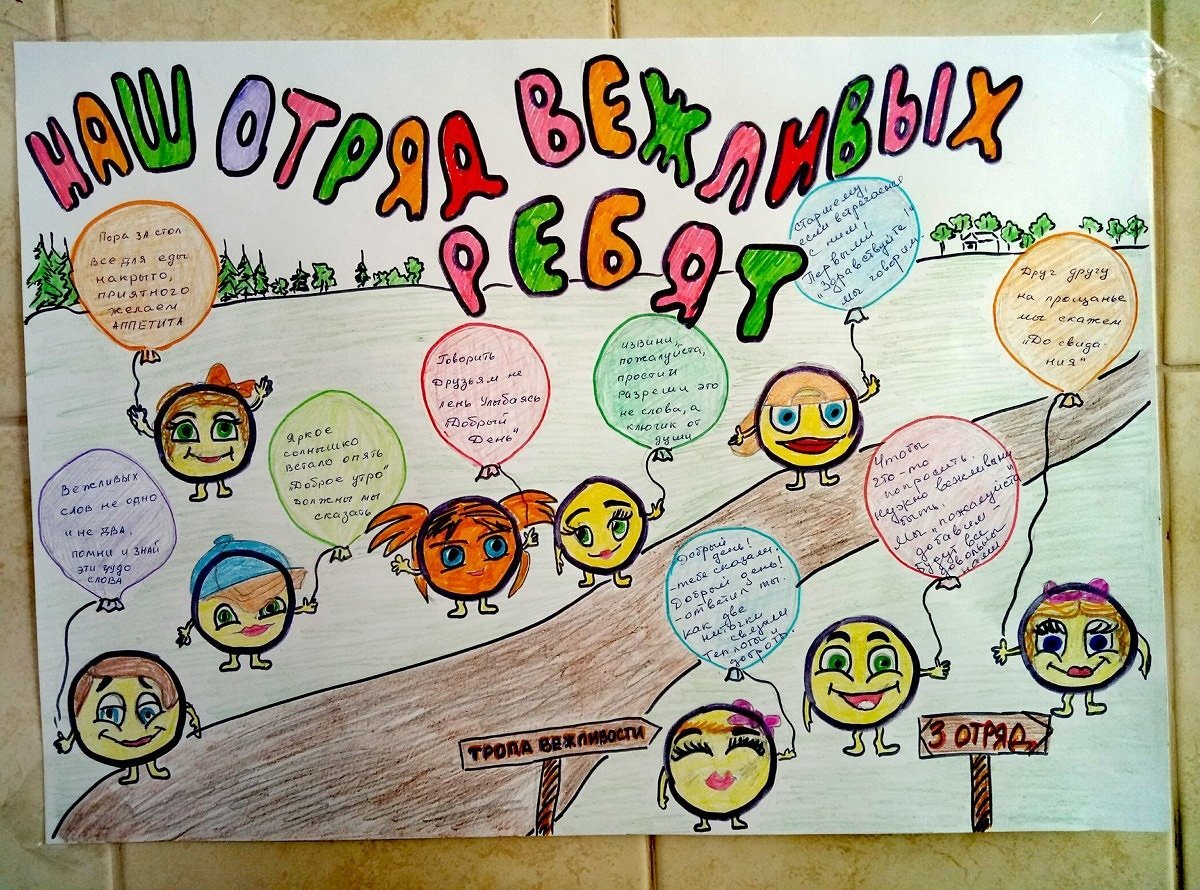 НАШ ОТРЯД ВЕЖЛИВЫХ
РЕБЯТ
Пора за стол
все для еды
накрыто,
приятного
желаем
АППЕТИТА
Старшему,
если встречаемся
с ним!
Первыми
„Здравствуйте!"
мы говорим
Друг другу
на прощанье
мы скажем
„До свида-
ния"
Говорить
друзьям не
лень Улыбаясь
„Добрый
День"
извини,
пожалуйста,
прости и
разреши это
не слова, а
ключик от
души
Яркое
солнышко
встало опять
„Доброе утро"
должны мы
сказать
Вежливых
слов не одно
и не два,
помни и знай
эти чудо
слова
Чтобы
что-то
попросить.
нужно вежливым
быть.
Мы „пожалуйста"
добавим –
будут все
довольны
нами
Добрый
день!
– тебе сказали.
Добрый день!
– ответил ты.
как две
ниточки
связали
Теплоты и
доброты.
ТРОПА ВЕЖЛИВОСТИ
3 ОТРЯД